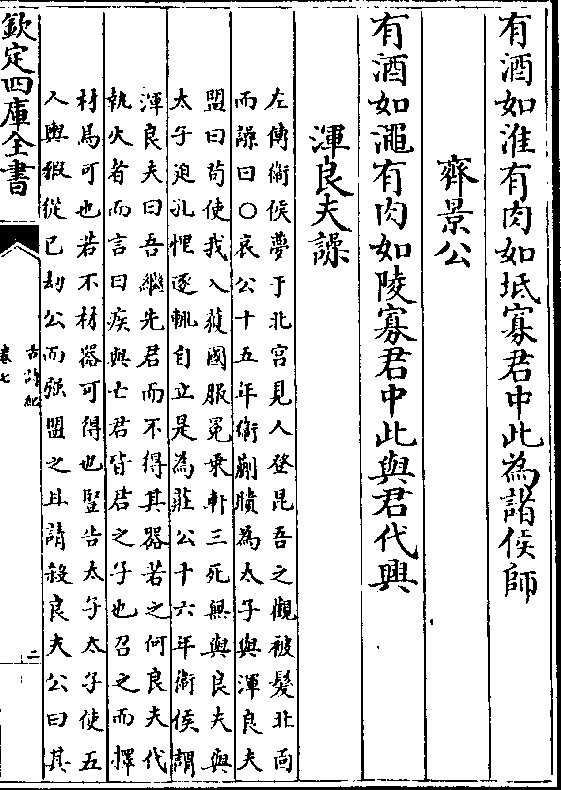 有酒如淮有肉如坻寡君中此為諸侯師
齊景公
有酒如澠有肉如陵寡君中此與君代興
渾良夫譟
左傳衛侯夢于北宮見人登昆吾之觀被髮北靣
而譟曰○哀公十五年衛蒯聵為太子與渾良夫
盟曰茍使我入獲國服冕乗軒三死無與良夫與
太子迫孔悝逐輒自立是為莊公十六年衛侯謂
渾良夫曰吾繼先君而不得其器若之何良夫代
執火者而言曰疾與亡君皆君之子也召之而擇
材焉可也若不材器可得也豎告太子太子使五
人輿豭從已劫公而强盟之且請殺良夫公曰其
欽定四庫全書
古詩紀
卷七
二